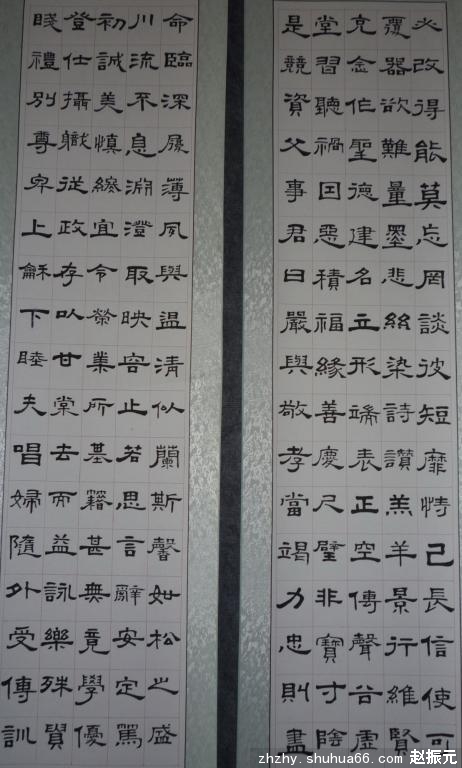 必改得能莫忘罔談彼短靡恃己長信使可
覆器欲難量墨悲絲染詩讚羔羊景行維賢
克念作聖德建名立形端表正空傳聲谷虛
堂習聽禍因惡積福緣善慶尺璧非寶寸陰
是競資父事君曰嚴與敬孝當竭力忠則盡
命臨深履薄夙興溫清似蘭斯馨如松之盛
川流不息淵澄取映容止若思言辭安定篤
初誠美慎終宜令榮業所基籍甚無竟學優
登仕攝職從政存以甘棠去而益詠樂殊貴
賤禮別尊卑上龢下睦夫唱婦隨外受傅訓
zhzhy.shuhua66.com 赵振元